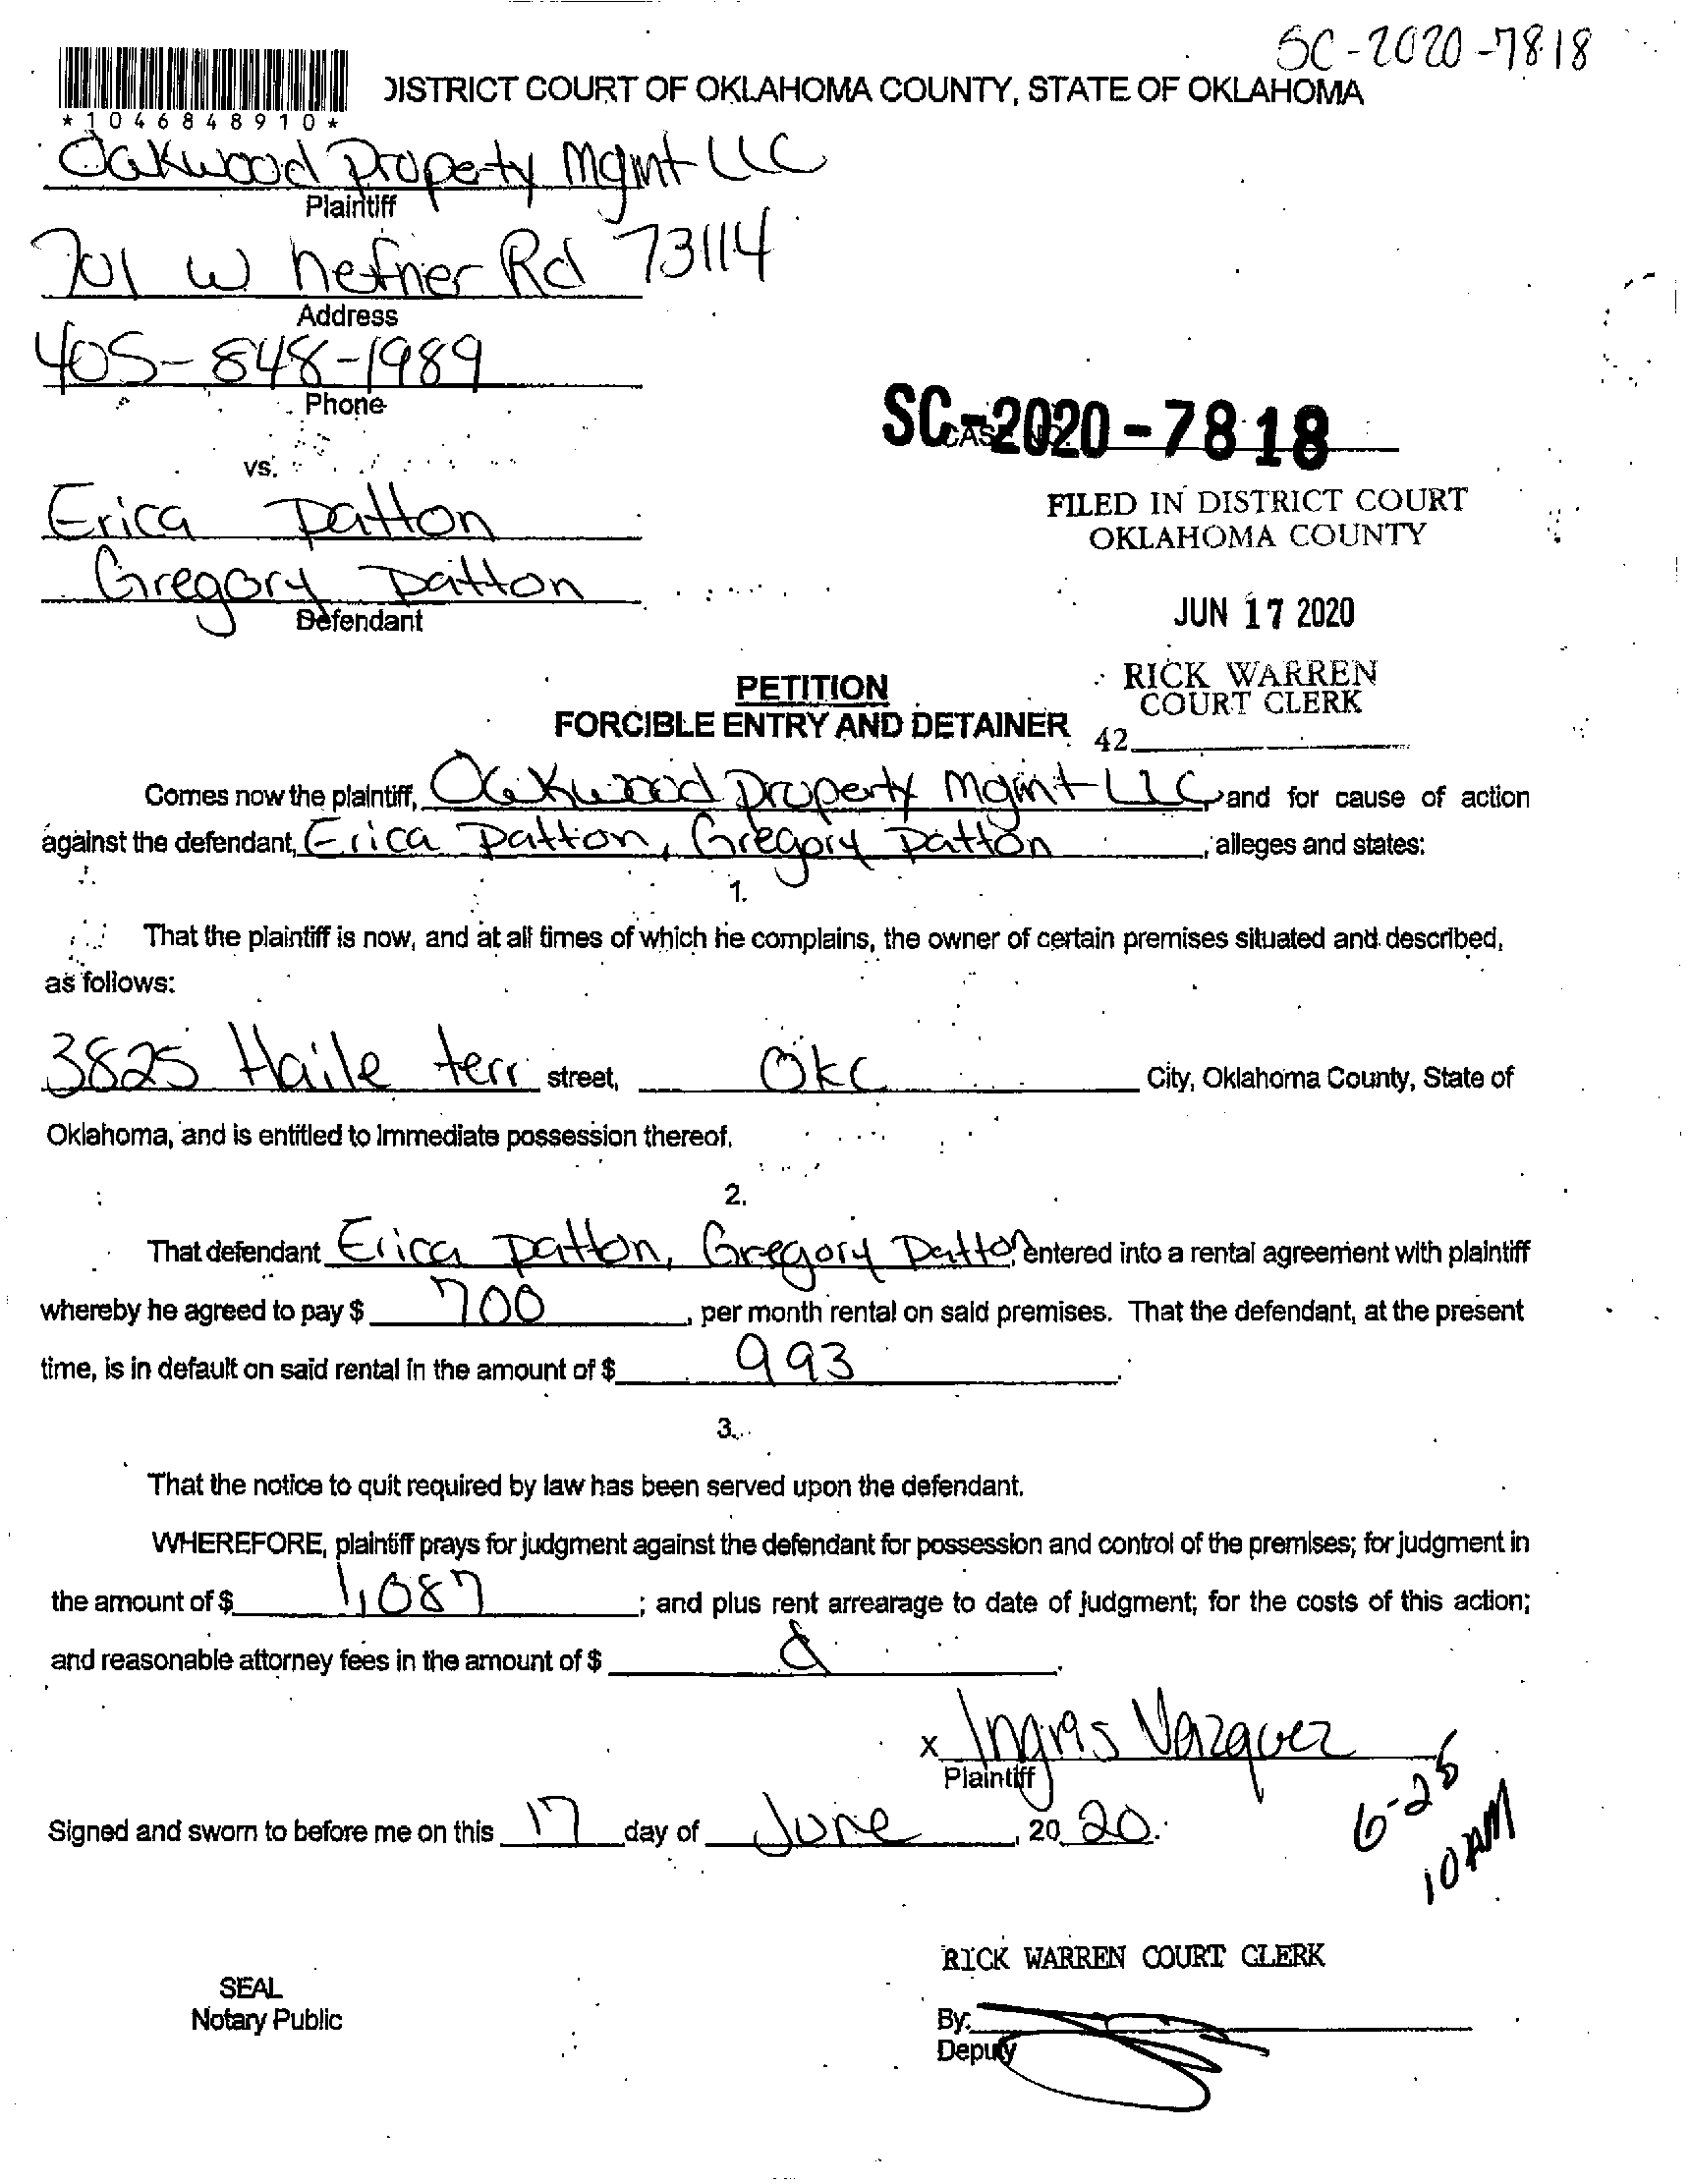 SC-2020-7818
DISTRICT COURT OF OKLAHOMA COUNTY, STATE OF OKLAHOMA
*1046848910*
Oakwood Property Mgmt LLC
Plaintiff
701 W hefner Rd 73114
Address
405-848-1989
Phone
SC-2020-7818
CASE NO.
vs.
Erica Patton
FILED IN DISTRICT COURT
OKLAHOMA COUNTY
Gregory Patton
Defendant
JUN 17 2020
RICK WARREN
COURT CLERK
42
PETITION
FORCIBLE ENTRY AND DETAINER
Comes now the plaintiff, Oakwood Property Mgmt LLC, and for cause of action
against the defendant, Erica Patton, Gregory Patton, alleges and states:
1.
That the plaintiff is now, and at all times of which he complains, the owner of certain premises situated and described,
as follows:
3825 Haile terr street, OKC City, Oklahoma County, State of
Oklahoma, and is entitled to immediate possession thereof.
2.
That defendant Erica Patton, Gregory Patton, entered into a rental agreement with plaintiff
whereby he agreed to pay $ 700, per month rental on said premises. That the defendant, at the present
time, is in default on said rental in the amount of $ 993.
3.
That the notice to quit required by law has been served upon the defendant.
WHEREFORE, plaintiff prays for judgment against the defendant for possession and control of the premises; for judgment in
the amount of $ 1,087; and plus rent arrearage to date of judgment; for the costs of this action;
and reasonable attorney fees in the amount of $
x Ingris Vazquez
Plaintiff
Signed and sworn to before me on this 17 day of June, 20 20.
6-26
10 AM
RICK WARREN COURT CLERK
SEAL
Notary Public
By:
Deputy